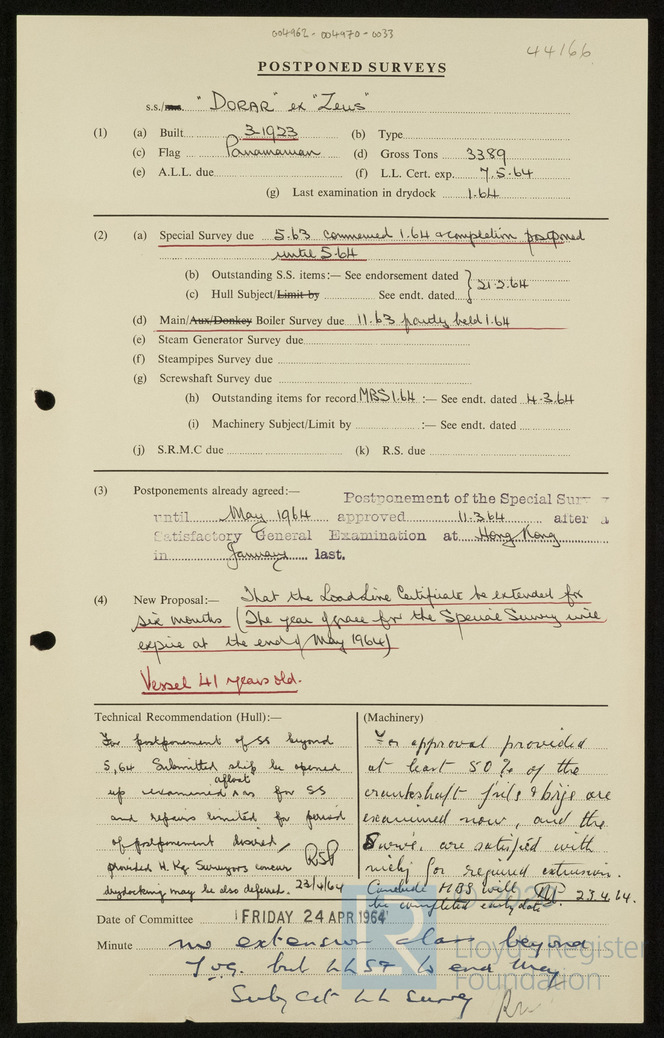 004962-004970-0033
44166
POSTPONED SURVEYS
s.s./m.s. "DORAR" ex "Zeus"
(1) (a) Built 3-1923 (b) Type
(c) Flag Panamanian (d) Gross Tons 3389
(e) A.L.L. due (f) L.L. Cert. exp. 7.5.64
(g) Last examination in drydock 1.64
(2) (a) Special Survey due 5.63 commenced 1.64 & completion postponed
until 5.64
(b) Outstanding S.S. items:— See endorsement dated } 21.2.64
(c) Hull Subject/Limit by See endt. dated
(d) Main/Aux/Donkey Boiler Survey due 11.63 partly held 1.64
(e) Steam Generator Survey due
(f) Steampipes Survey due
(g) Screwshaft Survey due
(h) Outstanding items for record MBS 1.64 :— See endt. dated 4.3.64
(i) Machinery Subject/Limit by :— See endt. dated
(j) S.R.M.C due (k) R.S. due
(3) Postponements already agreed:— Postponement of the Special Sur
until May 1964 approved 11.3.64 after a
Satisfactory General Examination at Hong Kong
in January last.
(4) New Proposal:— That the LoadLine Certificate be extended for
six months (The year of grace for the Special Survey will
expire at the end of May 1964)
Vessel 41 years old.
Technical Recommendation (Hull):—
For postponement of SS beyond
5.64 Submitted ship be opened
afloat
up & examined as for SS
and repairs limited for period
of postponement desired
provided H. Kg Surveyors concur RSP
drydocking may be also deferred. 23/4/64
(Machinery)
For approval provided
at least 50% of the
crankshaft jnls & brgs are
examined now, and the
Survs. are satisfied with
mchy for required extension.
Conclude MBS will 23.4.64.
be completed early date.
Date of Committee FRIDAY 24 APR 1964
Minute no extension class beyond
Y.o.g. but LLST to end May
Subject LL Survey
Lloyd's Register
Foundation